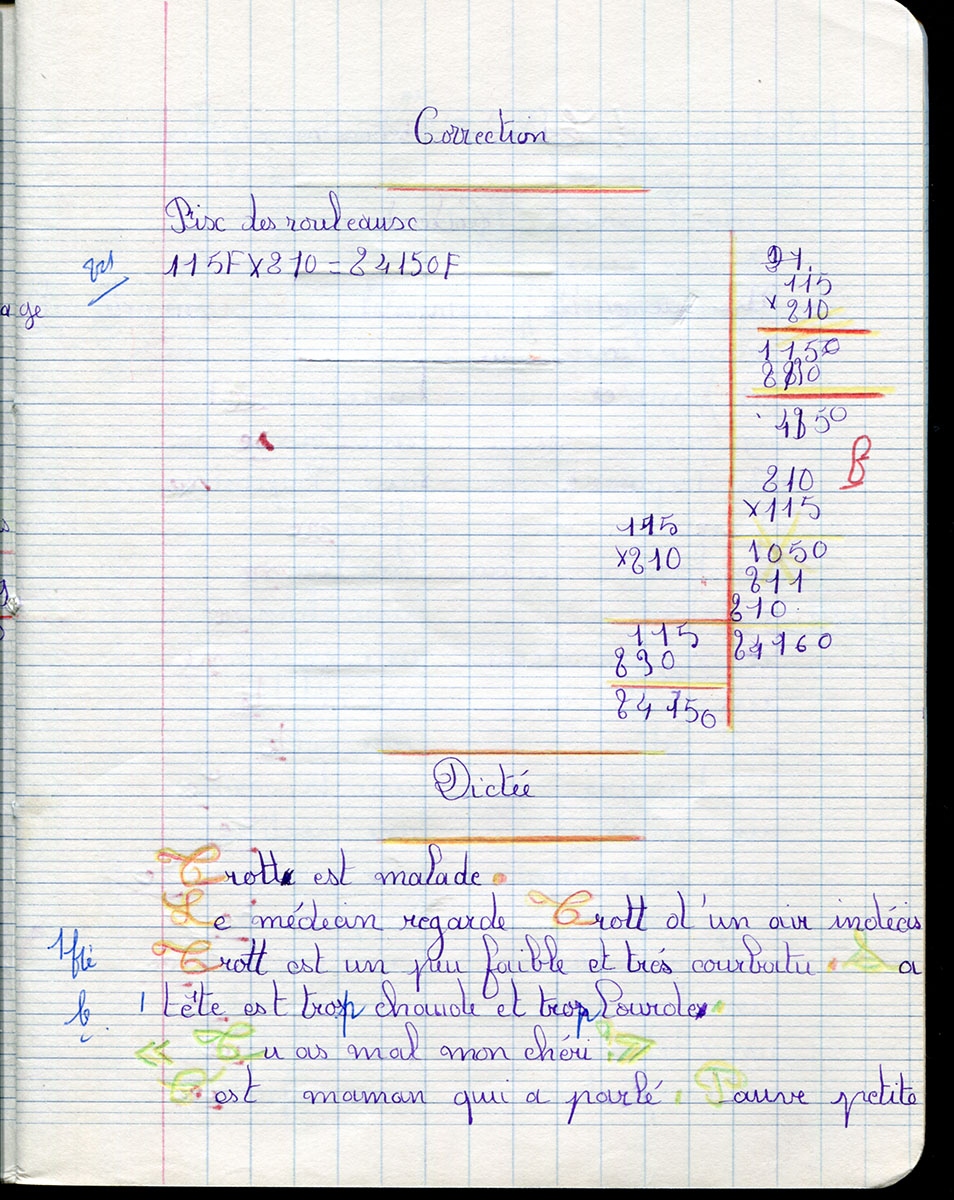 Correction
Prix des rouleaux
115F X 210 = 24150F
age
115
x 210
1150
210
x 115
1050
211
210.
24160
115
x210
115
230
24150
B
Dictée
Trott est malade.
Le médecin regarde Trott d'un air indécis
Trott est un peu faible et très courbatu. Sa
tête est trop chaude et trop lourde.
« Tu as mal mon chéri »
C'est maman qui a parlé. Pauvre petite